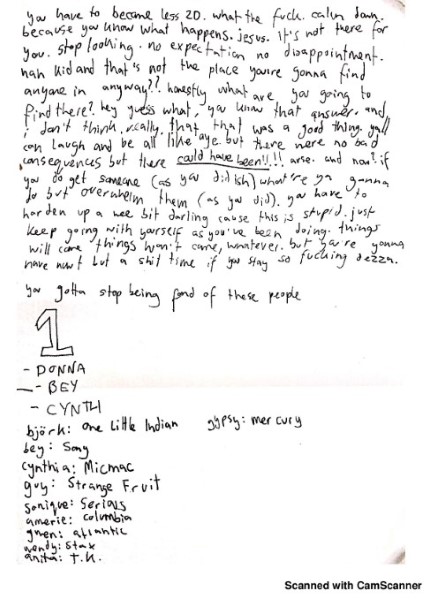 you have to become less 2D. what the fuck. calm down.
because you know what happens. jesus. it's not there for
you. stop looking. no expectation no disappointment.
nah kid and that's not the place you're gonna find
anyone in anyway?! honestly what are you going to
find there? hey guess what, you know that answer. and
i don't think, really, that that was a good thing. yall
can laugh and be all like 'aye. but there were no bad
consequences but there could have been!!!! arse. and now? if
you do get someone (as you did ish) what're ya gonna
do but overwhelm them (as you did). you have to
harden up a wee bit darling cause this is stupid. just
keep going with yourself as you've been doing. things
will come things won't come, whatever. but you're gonna
have nowt but a shit time if you stay so fucking dezza.
you gotta stop being fond of these people
1
- DONNA
- BEY
- CYNTH
björk: one little indian gypsy: mercury
bey: Sony
cynthia: Micmac
guy: Strange Fruit
sonique: Serious
amerie: columbia
gwen: atlantic
wendy: Stax
anita: T.K.
Scanned with CamScanner